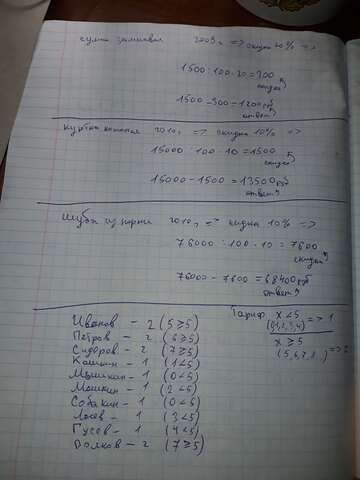 сумка замшевая 2009г => скидка 20% =>
1500 : 100 · 20 = 300
скидка
1500 - 300 = 1200 руб
ответ
куртка кожаная 2010г => скидка 10% =>
15000 : 100 · 10 = 1500
скидка
15000 - 1500 = 13500 руб
ответ
Шуба из норки 2010г => скидка 10% =>
76000 : 100 · 10 = 7600
скидка
76000 - 7600 = 68400 руб
ответ
Иванов - 2 (5≥5)
Петров - 2 (6≥5)
Сидоров - 2 (7≥5)
Кошкин - 1 (1<5)
Мышкин - 1 (0<5)
Мошкин - 1 (2<5)
Собакин - 1 (0<5)
Лосев - 1 (3<5)
Гусев - 1 (4<5)
Волков - 2 (7≥5)
Тариф x<5
(0,1,2,3,4) => 1
x ≥ 5
(5,6,7,8..) => 2